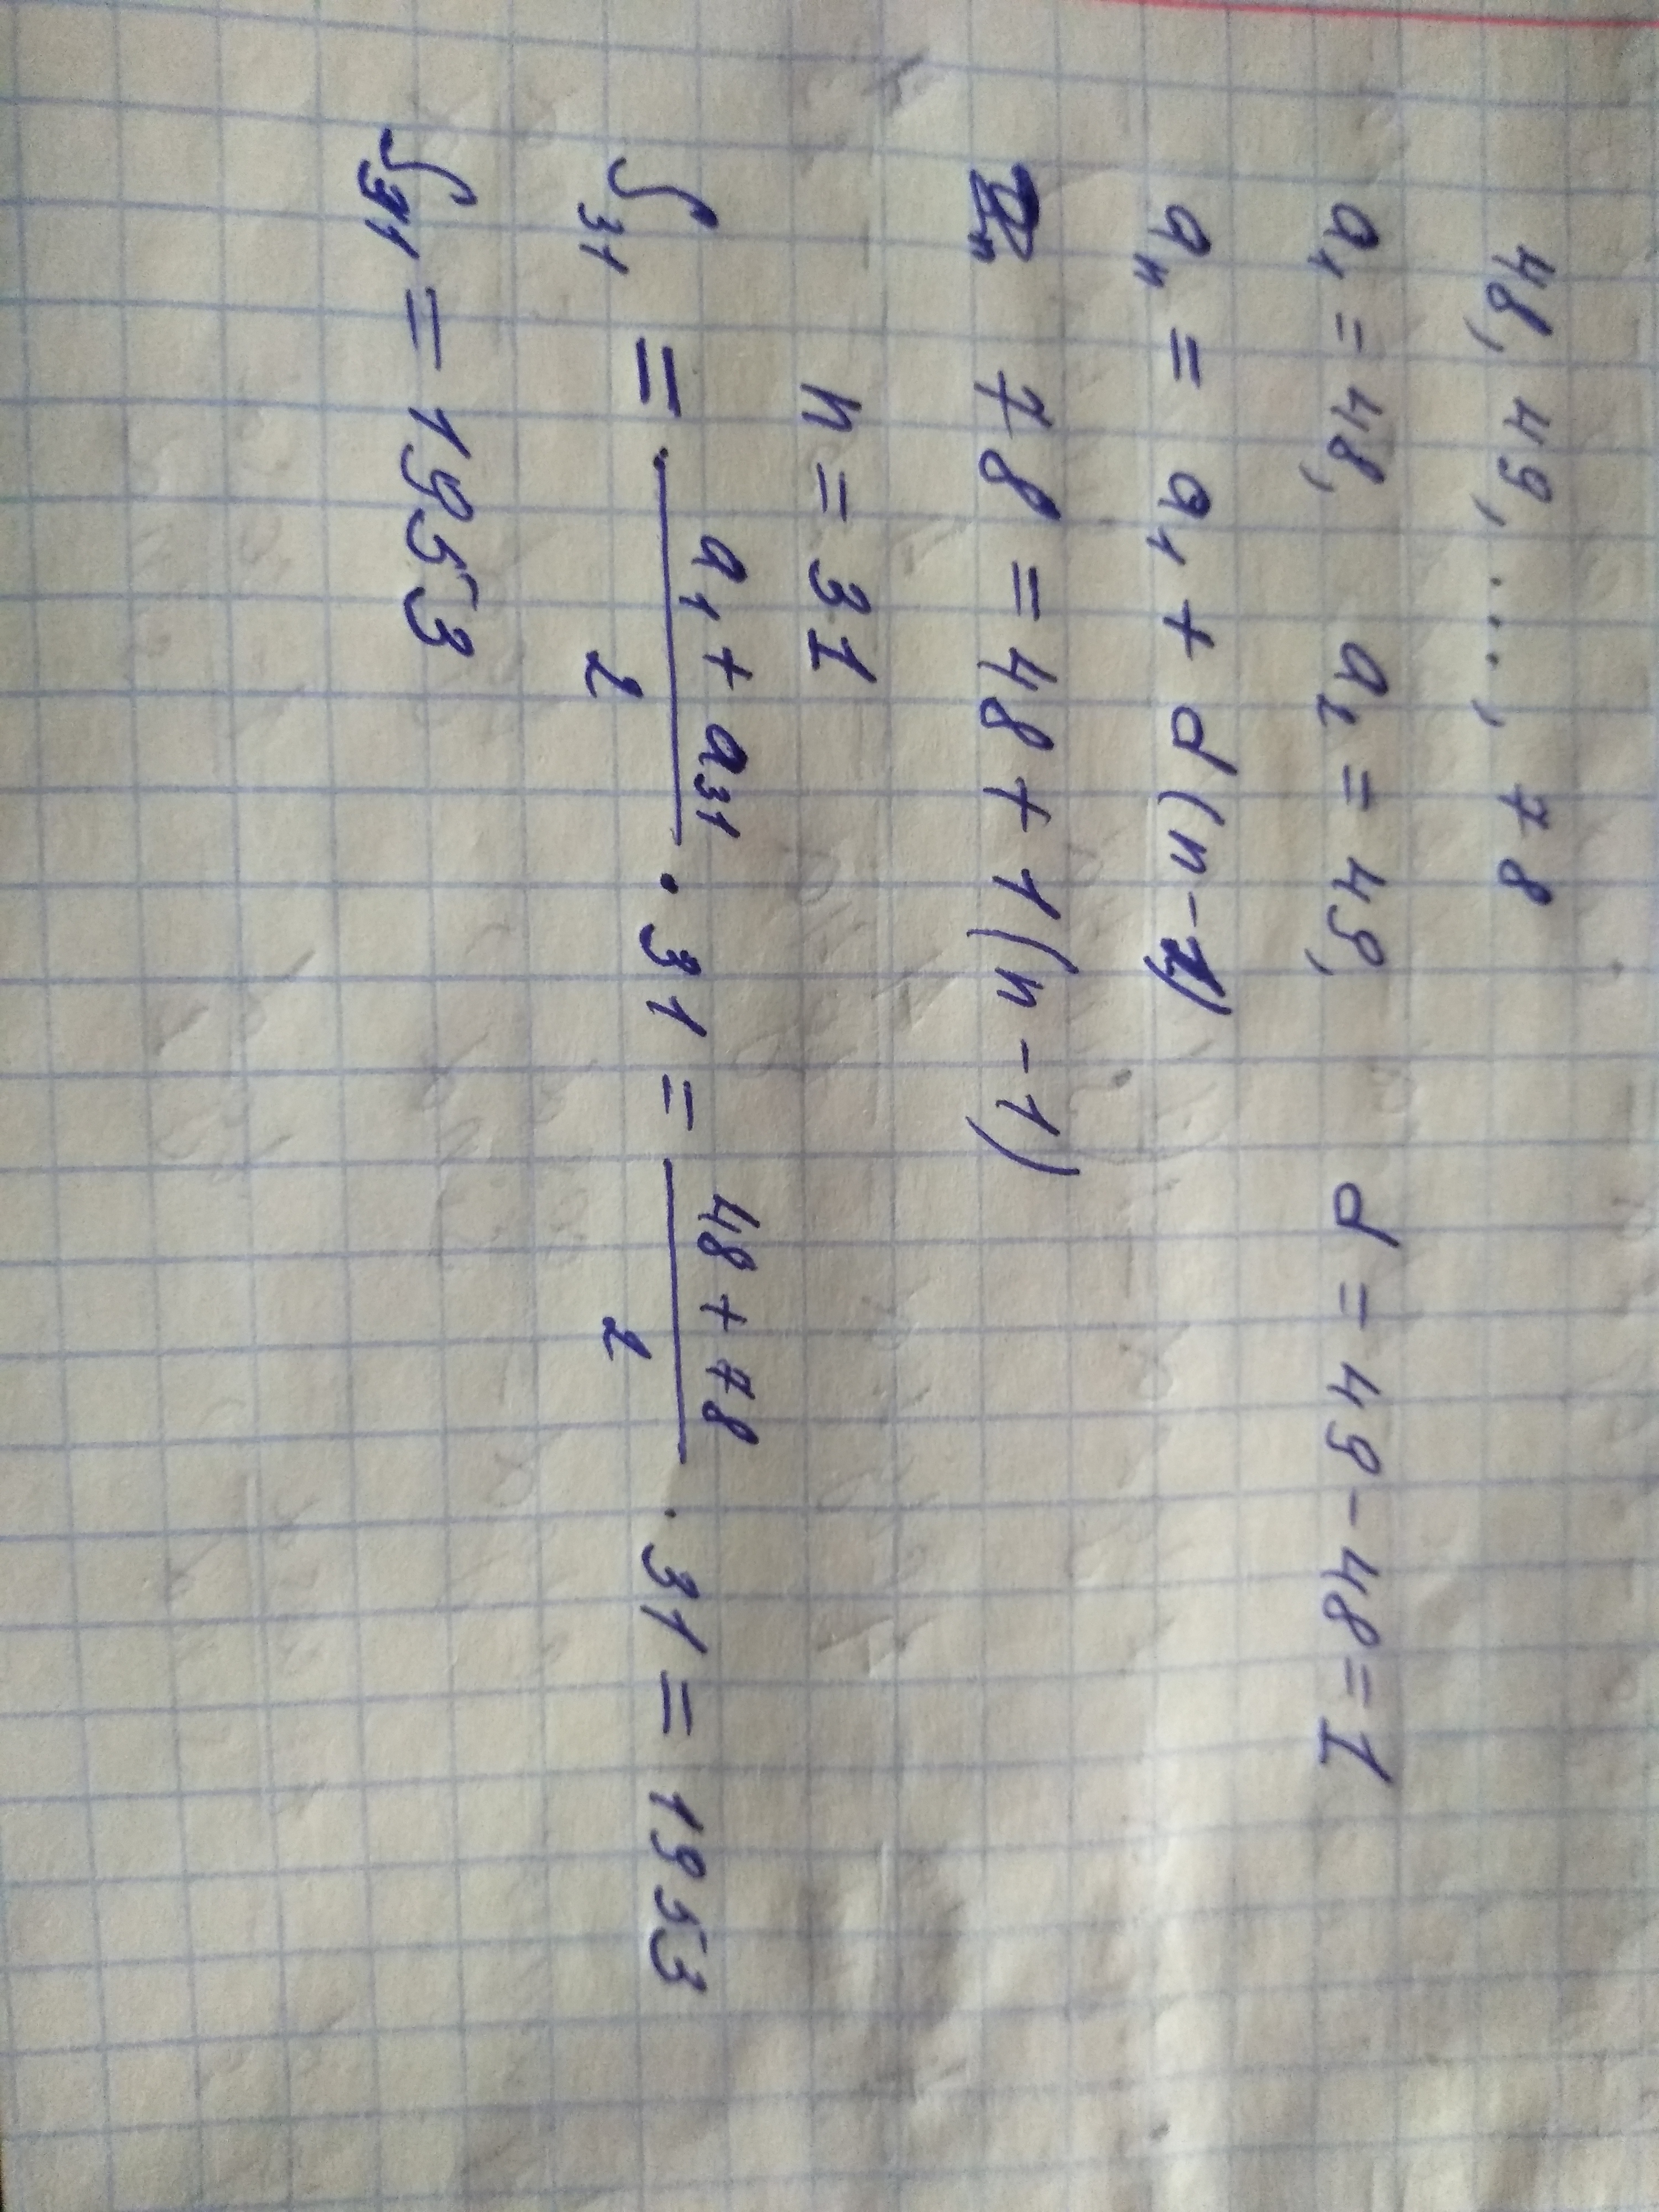 48, 49, ..., 78
a₁ = 48, a₂ = 49, d = 49 - 48 = 1
aₙ = a₁ + d(n-1)
78 = 48 + 1(n - 1)
n = 31
S₃₁ = (a₁ + a₃₁)/2 · 31 = (48 + 78)/2 · 31 = 1953
S₃₁ = 1953